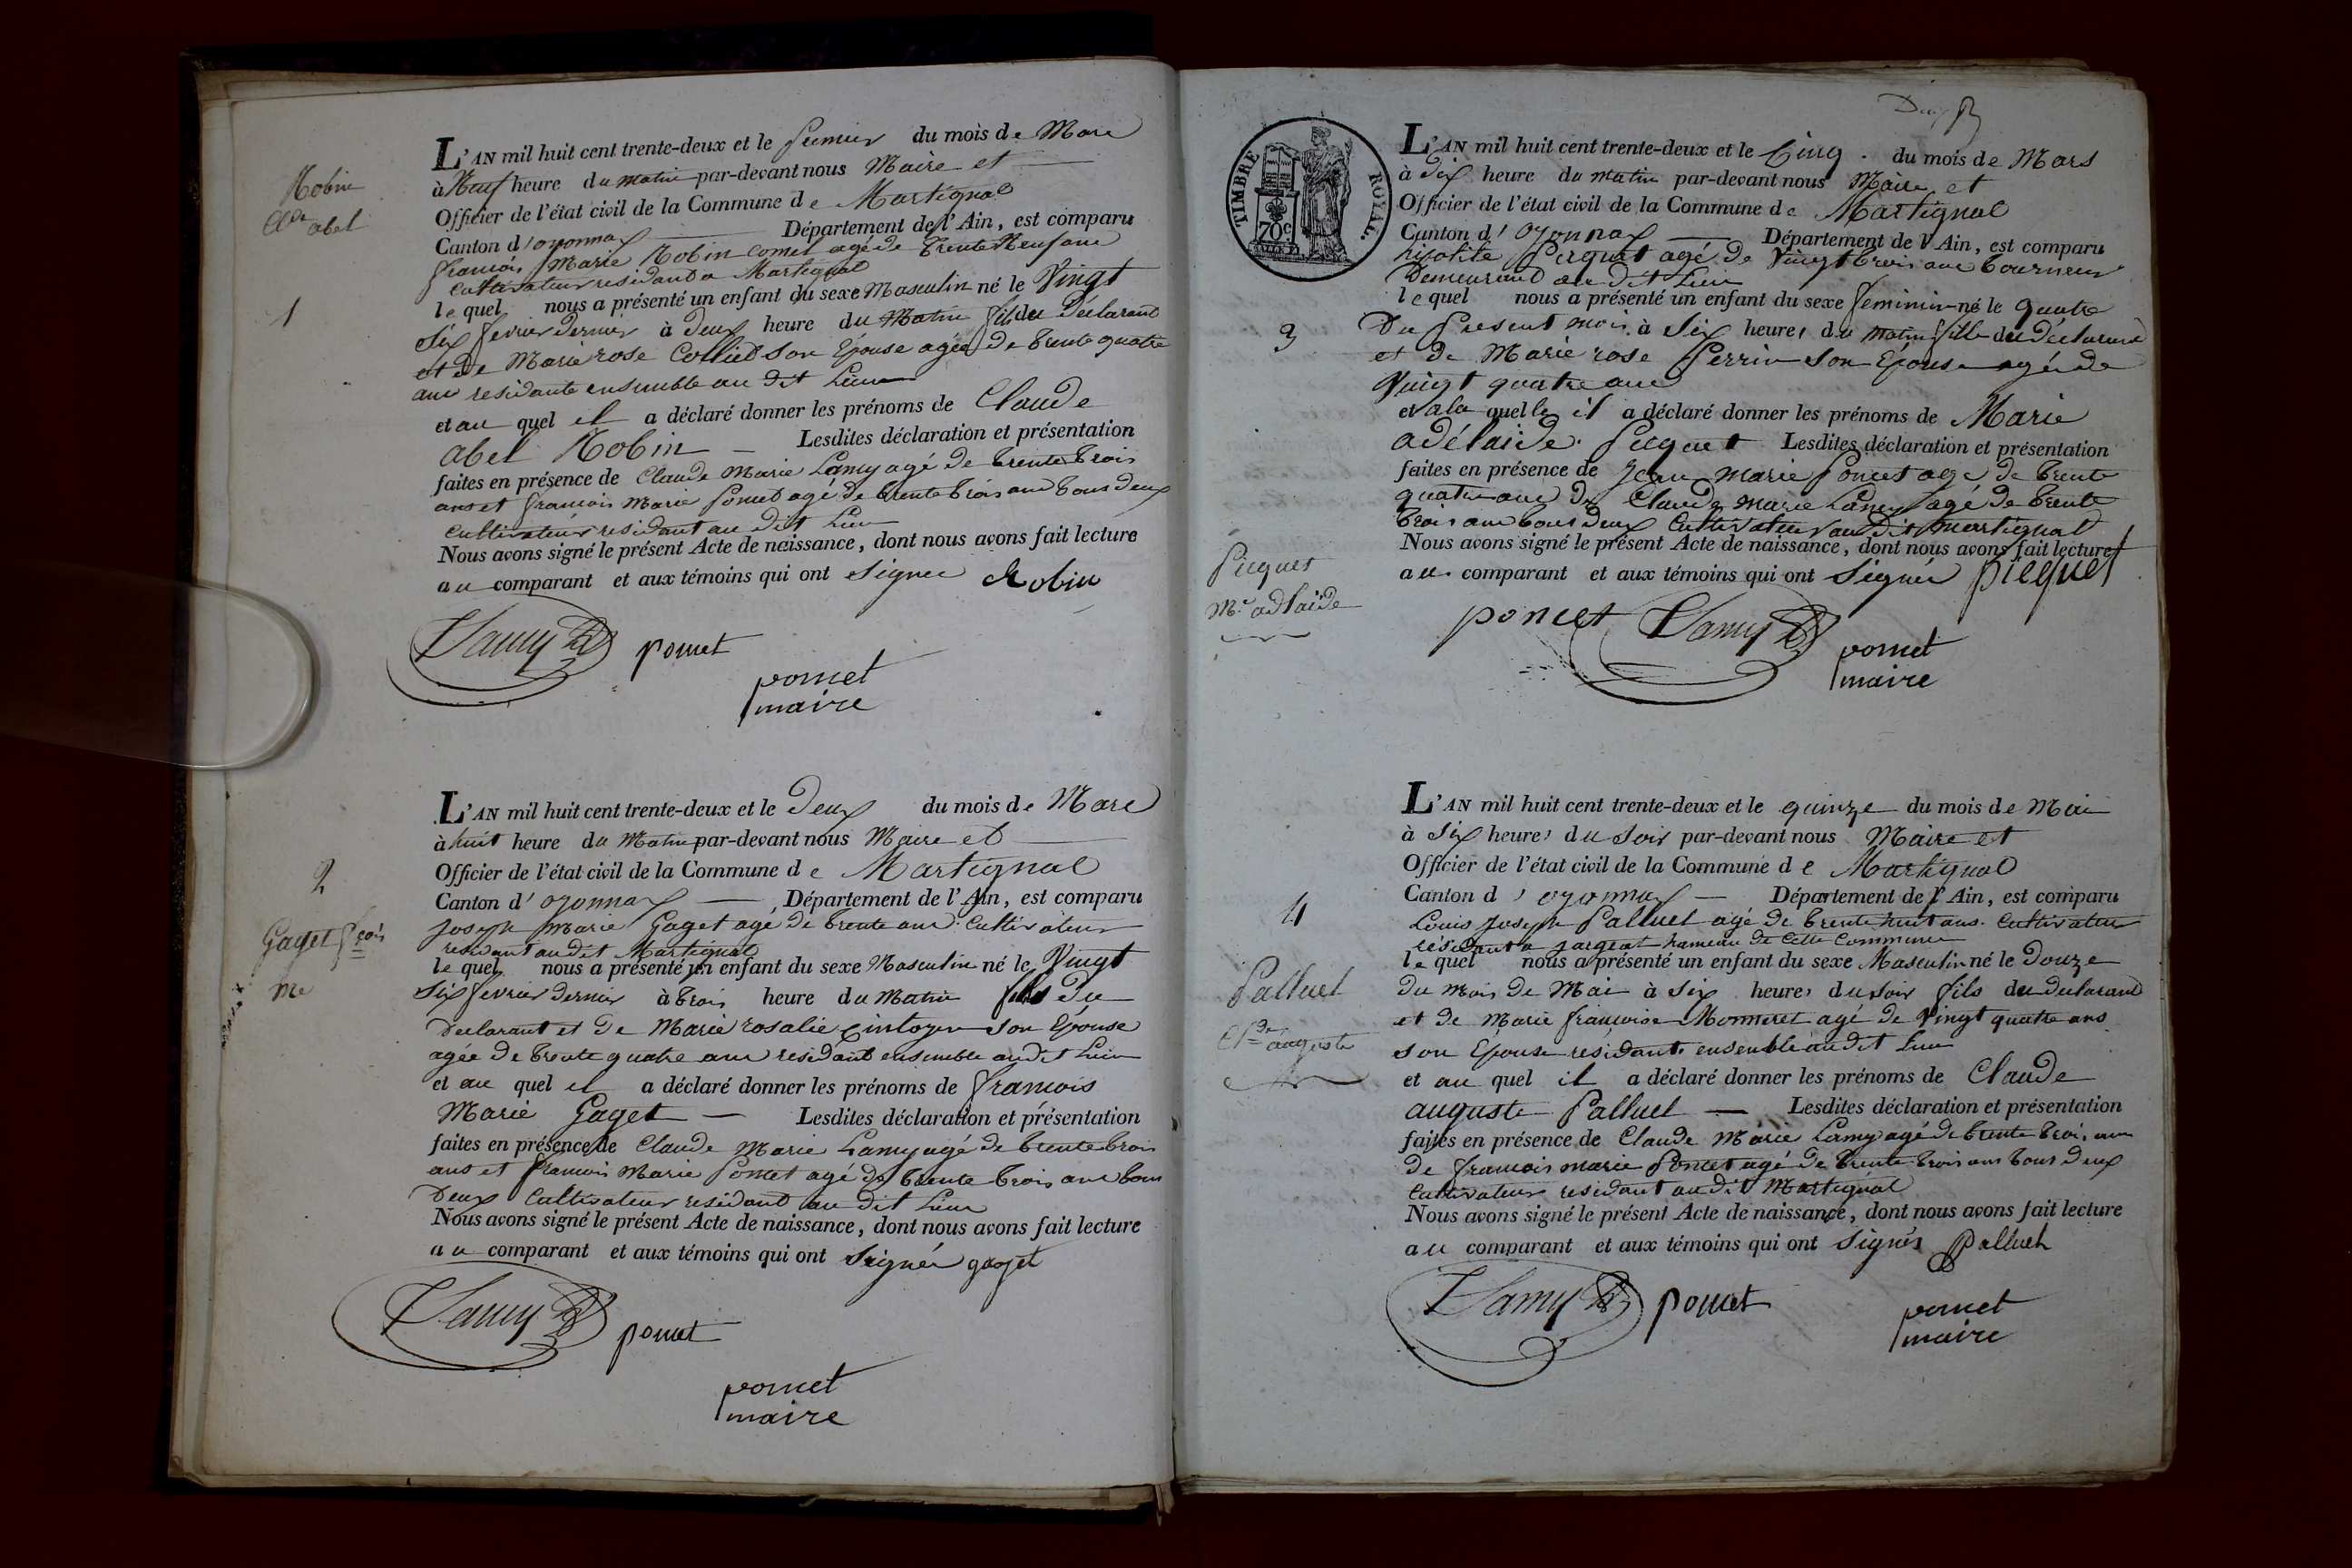 Robin
Cl.de abel
1
L'AN mil huit cent trente-deux et le premier du mois de Mars
à Neuf heure du matin par-devant nous Maire et
Officier de l'état civil de la Commune de Martignat
Canton d'oyonnax Département de l'Ain, est comparu
françois Marie Robin Comet agé de trente Neuf ans
cultivateur residant a Martignat
lequel nous a présenté un enfant du sexe Masculin né le Vingt
six fevrier dernier à deux heure du Matin fils du déclarant
et de Marie rose Colliet son Epouse agée de trente quatre
ans residante ensemble au dit Lieu
et au quel il a déclaré donner les prénoms de Claude
abel Robin Lesdites déclaration et présentation
faites en présence de Claude Marie Lamy agé de trente trois
ans et francois Marie Poncet agé de trente trois ans tous deux
cultivateurs residant au dit Lieu
Nous avons signé le présent Acte de naissance, dont nous avons fait lecture
au comparant et aux témoins qui ont signer Robin
Lamy poncet
poncet
maire
2
Gaget f.çois
Me
L'AN mil huit cent trente-deux et le deux du mois de Mars
à huit heure du Matin par-devant nous Maire et
Officier de l'état civil de la Commune de Martignat
Canton d'oyonnax Département de l'Ain, est comparu
joseph Marie Gaget agé de trente ans Cultivateur
residant au dit Martignat
lequel nous a présenté un enfant du sexe Masculin né le Vingt
six fevrier dernier à trois heure du Matin fils du
declarant et de Marie rosalie son Epouse
agée de trente quatre ans residant ensemble au dit Lieu
et au quel il a déclaré donner les prénoms de francois
Marie Gaget Lesdites déclaration et présentation
faites en présence de Claude Marie Lamy agé de trente trois
ans et francois Marie Poncet agé de trente trois ans tous
deux Cultivateur residant au dit Lieu
Nous avons signé le présent Acte de naissance, dont nous avons fait lecture
au comparant et aux témoins qui ont signér gaget
Lamy poncet
poncet
maire
TIMBRE ROYAL.
70c
3
Picquet
M.e adlaide
L'AN mil huit cent trente-deux et le Cinq du mois de Mars
à dix heure du matin par-devant nous Maire et
Officier de l'état civil de la Commune de Martignat
Canton d'oyonnax Département de l'Ain, est comparu
hipolite Picquet agé de Vingt trois ans tourneur
demeurant au dit Lieu
lequel nous a présenté un enfant du sexe feminin né le quatre
du présent mois à six heures du matin fille du déclarant
et de Marie rose Perrin son Epouse agée de
Vingt quatre ans
et a la quelle il a déclaré donner les prénoms de Marie
adélaide Picquet Lesdites déclaration et présentation
faites en présence de jean marie Poncet agé de trente
quatre ans de Claude marie Lamy agé de trente
trois ans tous deux Cultivateur au dit martignat
Nous avons signé le présent Acte de naissance, dont nous avons fait lecture
au comparant et aux témoins qui ont signér picquet
poncet Lamy
poncet
maire
4
Palluet
Cl.de auguste
L'AN mil huit cent trente-deux et le quinze du mois de Mai
à six heures du soir par-devant nous Maire et
Officier de l'état civil de la Commune de Martignat
Canton d'oyonnax Département de l'Ain, est comparu
Louis joseph Palluet agé de trente huit ans Cultivateur
résidant a jargeat hameau de cette Commune
lequel nous a présenté un enfant du sexe Masculin né le Douze
du mois de Mai à six heures du soir fils du declarant
et de Marie françoise Monneret agé de Vingt quatre ans
son Epouse résidants ensemble au dit Lieu
et au quel il a déclaré donner les prénoms de Claude
auguste Palluet Lesdites déclaration et présentation
faites en présence de Claude Marie Lamy agé de trente trois ans
de francois marie Poncet agé de trente trois ans tous deux
Cultivateur residant au dit Martignat
Nous avons signé le présent Acte de naissance, dont nous avons fait lecture
au comparant et aux témoins qui ont signés Palluet
Lamy poncet
poncet
maire